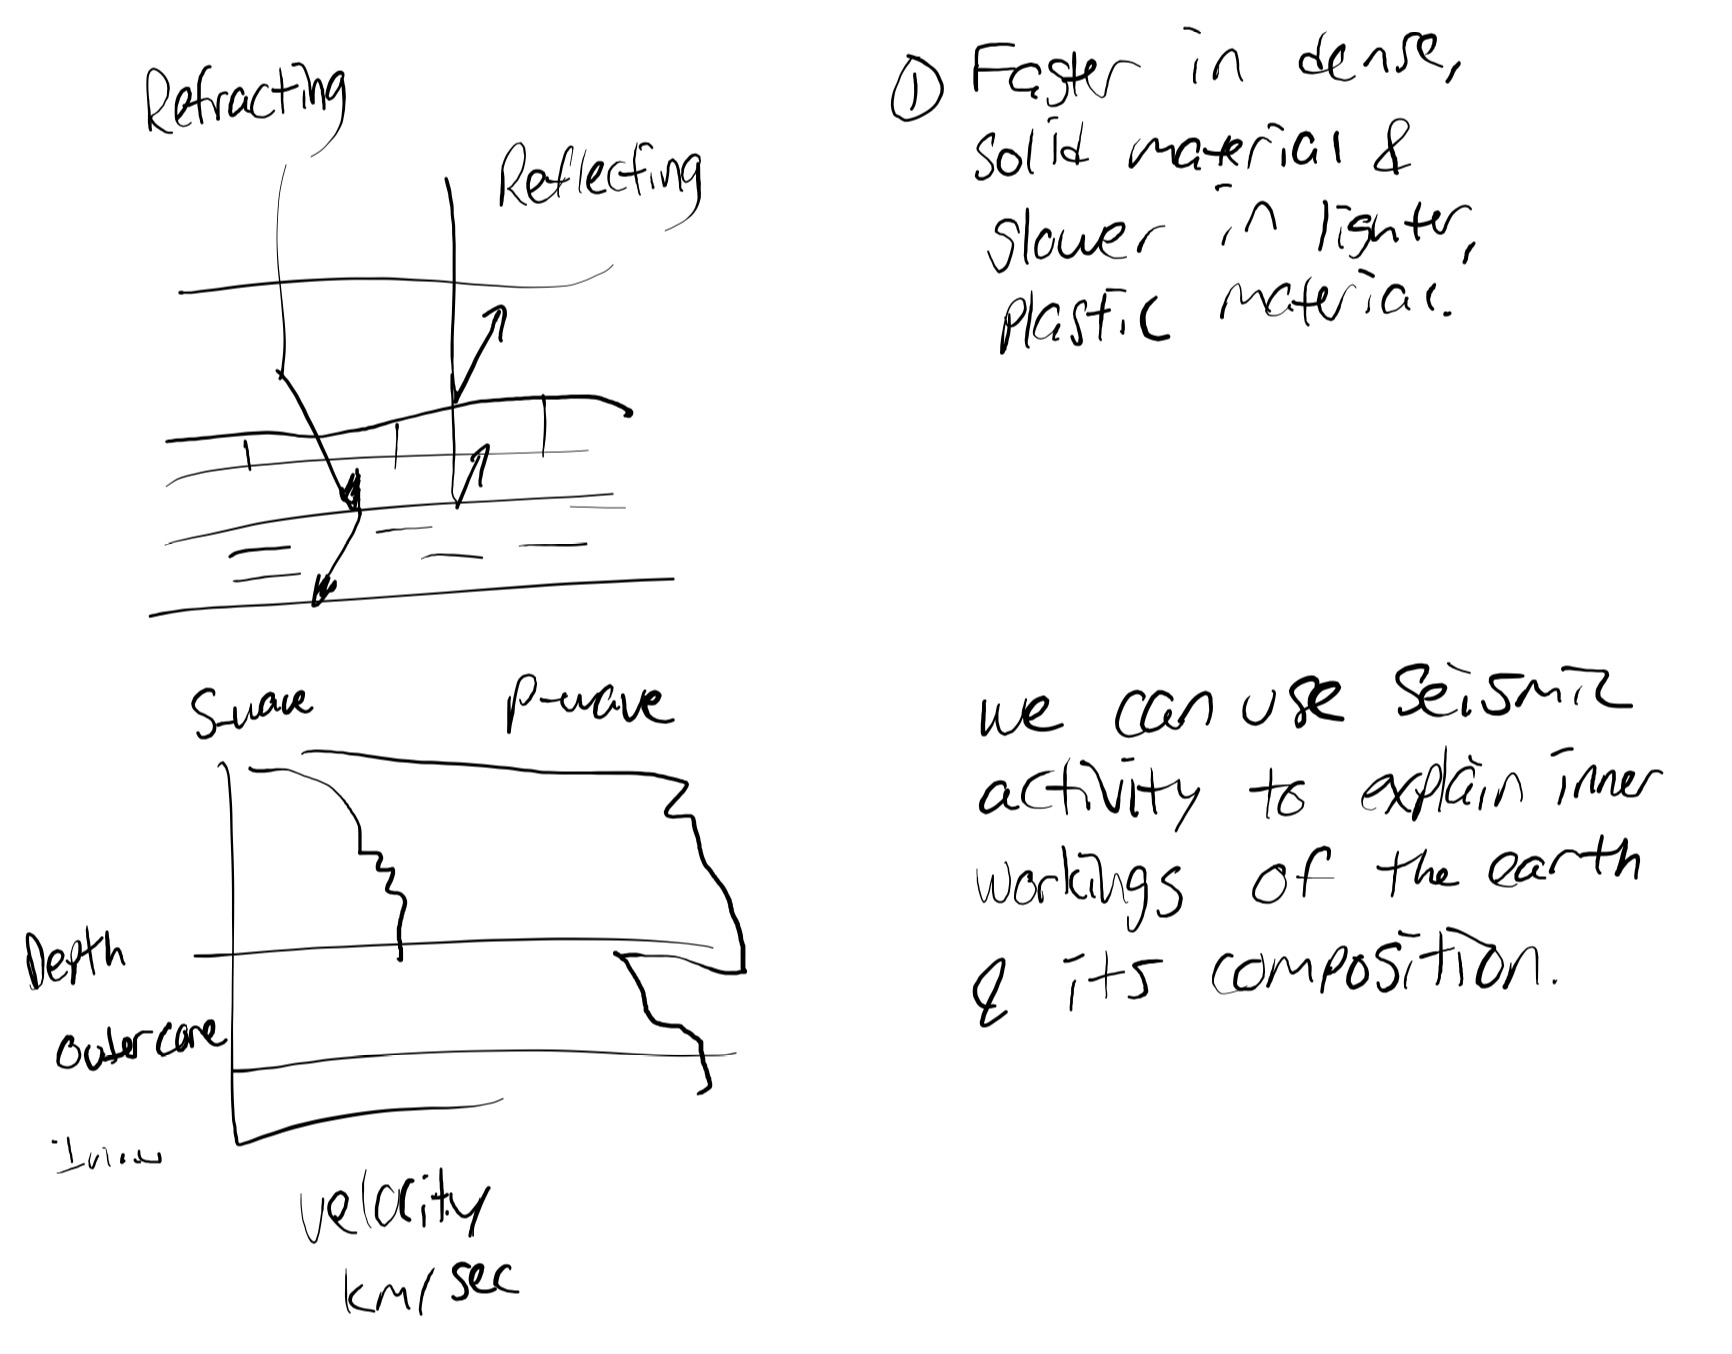 Refracting
Reflecting
① Faster in dense,
solid material &
slower in lighter,
plastic material.
S-wave
P-wave
Depth
Outer core
velocity
km/sec
we can use seismic
activity to explain inner
workings of the earth
& its composition.